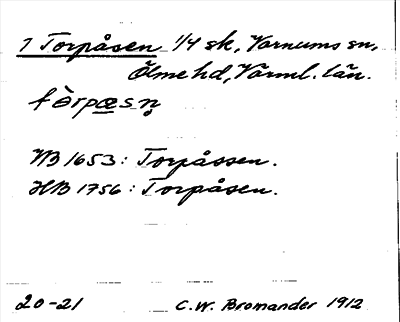 1 Torpåsen 1/4 sk, Varnums sn,
Ölme hd, Värml. län.
tòrpæsn̥
JB 1653: Torpåssen.
HB 1756: Torpåsen.
20-21 C.W. Bromander 1912